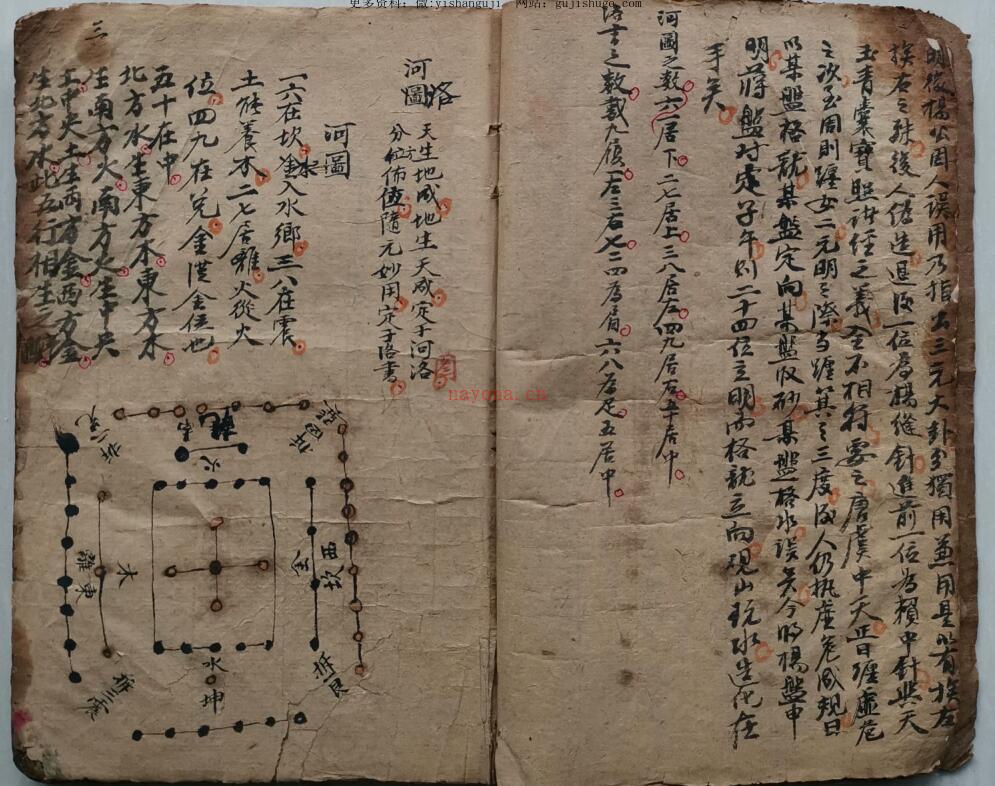 更多资料：微:yishanguji 网站：gujishuge.com
明後楊公因人誤用乃指出三元大卦至獨用兼用是以有挨左
挨右之殊後人偽造退後一位為楊縫針進前一位為賴中針與天
玉青囊寶照諸經之義全不相符要之唐虞中天正日躔虛危
之次至周則躔女二元明之際當躔箕之三度後人仍执虛危成規曰
以某盤格龍某盤定向某盤收砂某盤格水誤矣今將楊盤申
明蔣盤对定子午則二十四位立明而格龍立向硯山玩水造化在
手矣
河圖之数一六居下二七居上三八居左四九居右五十居中
洛書之数戴九履一左三右七二四為肩六八為足五居中
三
河圖
洛
天生地成地生天成定于河洛
分位佈值隨元妙用定于洛書
河圖
一六在坎金入水鄉三八在震
土能養木二七居離火從火
位四九在兌金從金位也
五十在中
北方水生東方木東方木
生南方火南方火生中央
土中央土生西方金西方金
生北方水此五行相生之
乾
南
火
木
東
離
金
西
坎
水
坤
nayona.cn